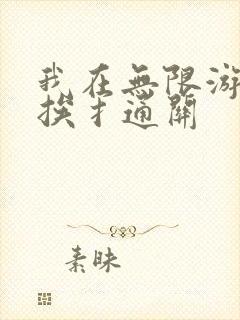 我在無限游
挨扌通關
素昧